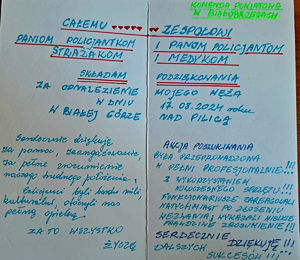 KOMENDA POWIATOWA
W BIAŁOBRZEGACH
CAŁEMU ZESPOŁOWI
PANIOM POLICJANTKOM I PANOM POLICJANTOM
STRAŻAKOM I MEDYKOM
SKŁADAM PODZIĘKOWANIA
ZA ODNALEZIENIE MOJEGO MĘŻA
W DNIU 17.08.2024 roku
W BIAŁEJ GÓRZE NAD PILICĄ
Serdecznie dziękuję
za pomoc, zaangażowanie,
za pełne zrozumienie
naszego trudnego położenia,
Policjanci byli bardzo mili
kulturalni, otoczyli nas
pełną opieką.
ZA TO WSZYSTKO
ŻYCZĘ
AKCJA POSZUKIWANIA
BYŁA PRZEPROWADZONA
W PEŁNI PROFESJONALNIE!!!
Z WYKORZYSTANIEM
NOWOCZESNEGO SPRZĘTU!!!
FUNKCJONARIUSZE ZAREAGOWALI
NATYCHMIAST PO ZGŁOSZENIU
WEZWANIA, WYKAZALI WIELKIE
PRAWDZIWE ZROZUMIENIE!!!
SERDECZNIE
DZIĘKUJĘ!!!
DALSZYCH
SUKCESÓW!!!